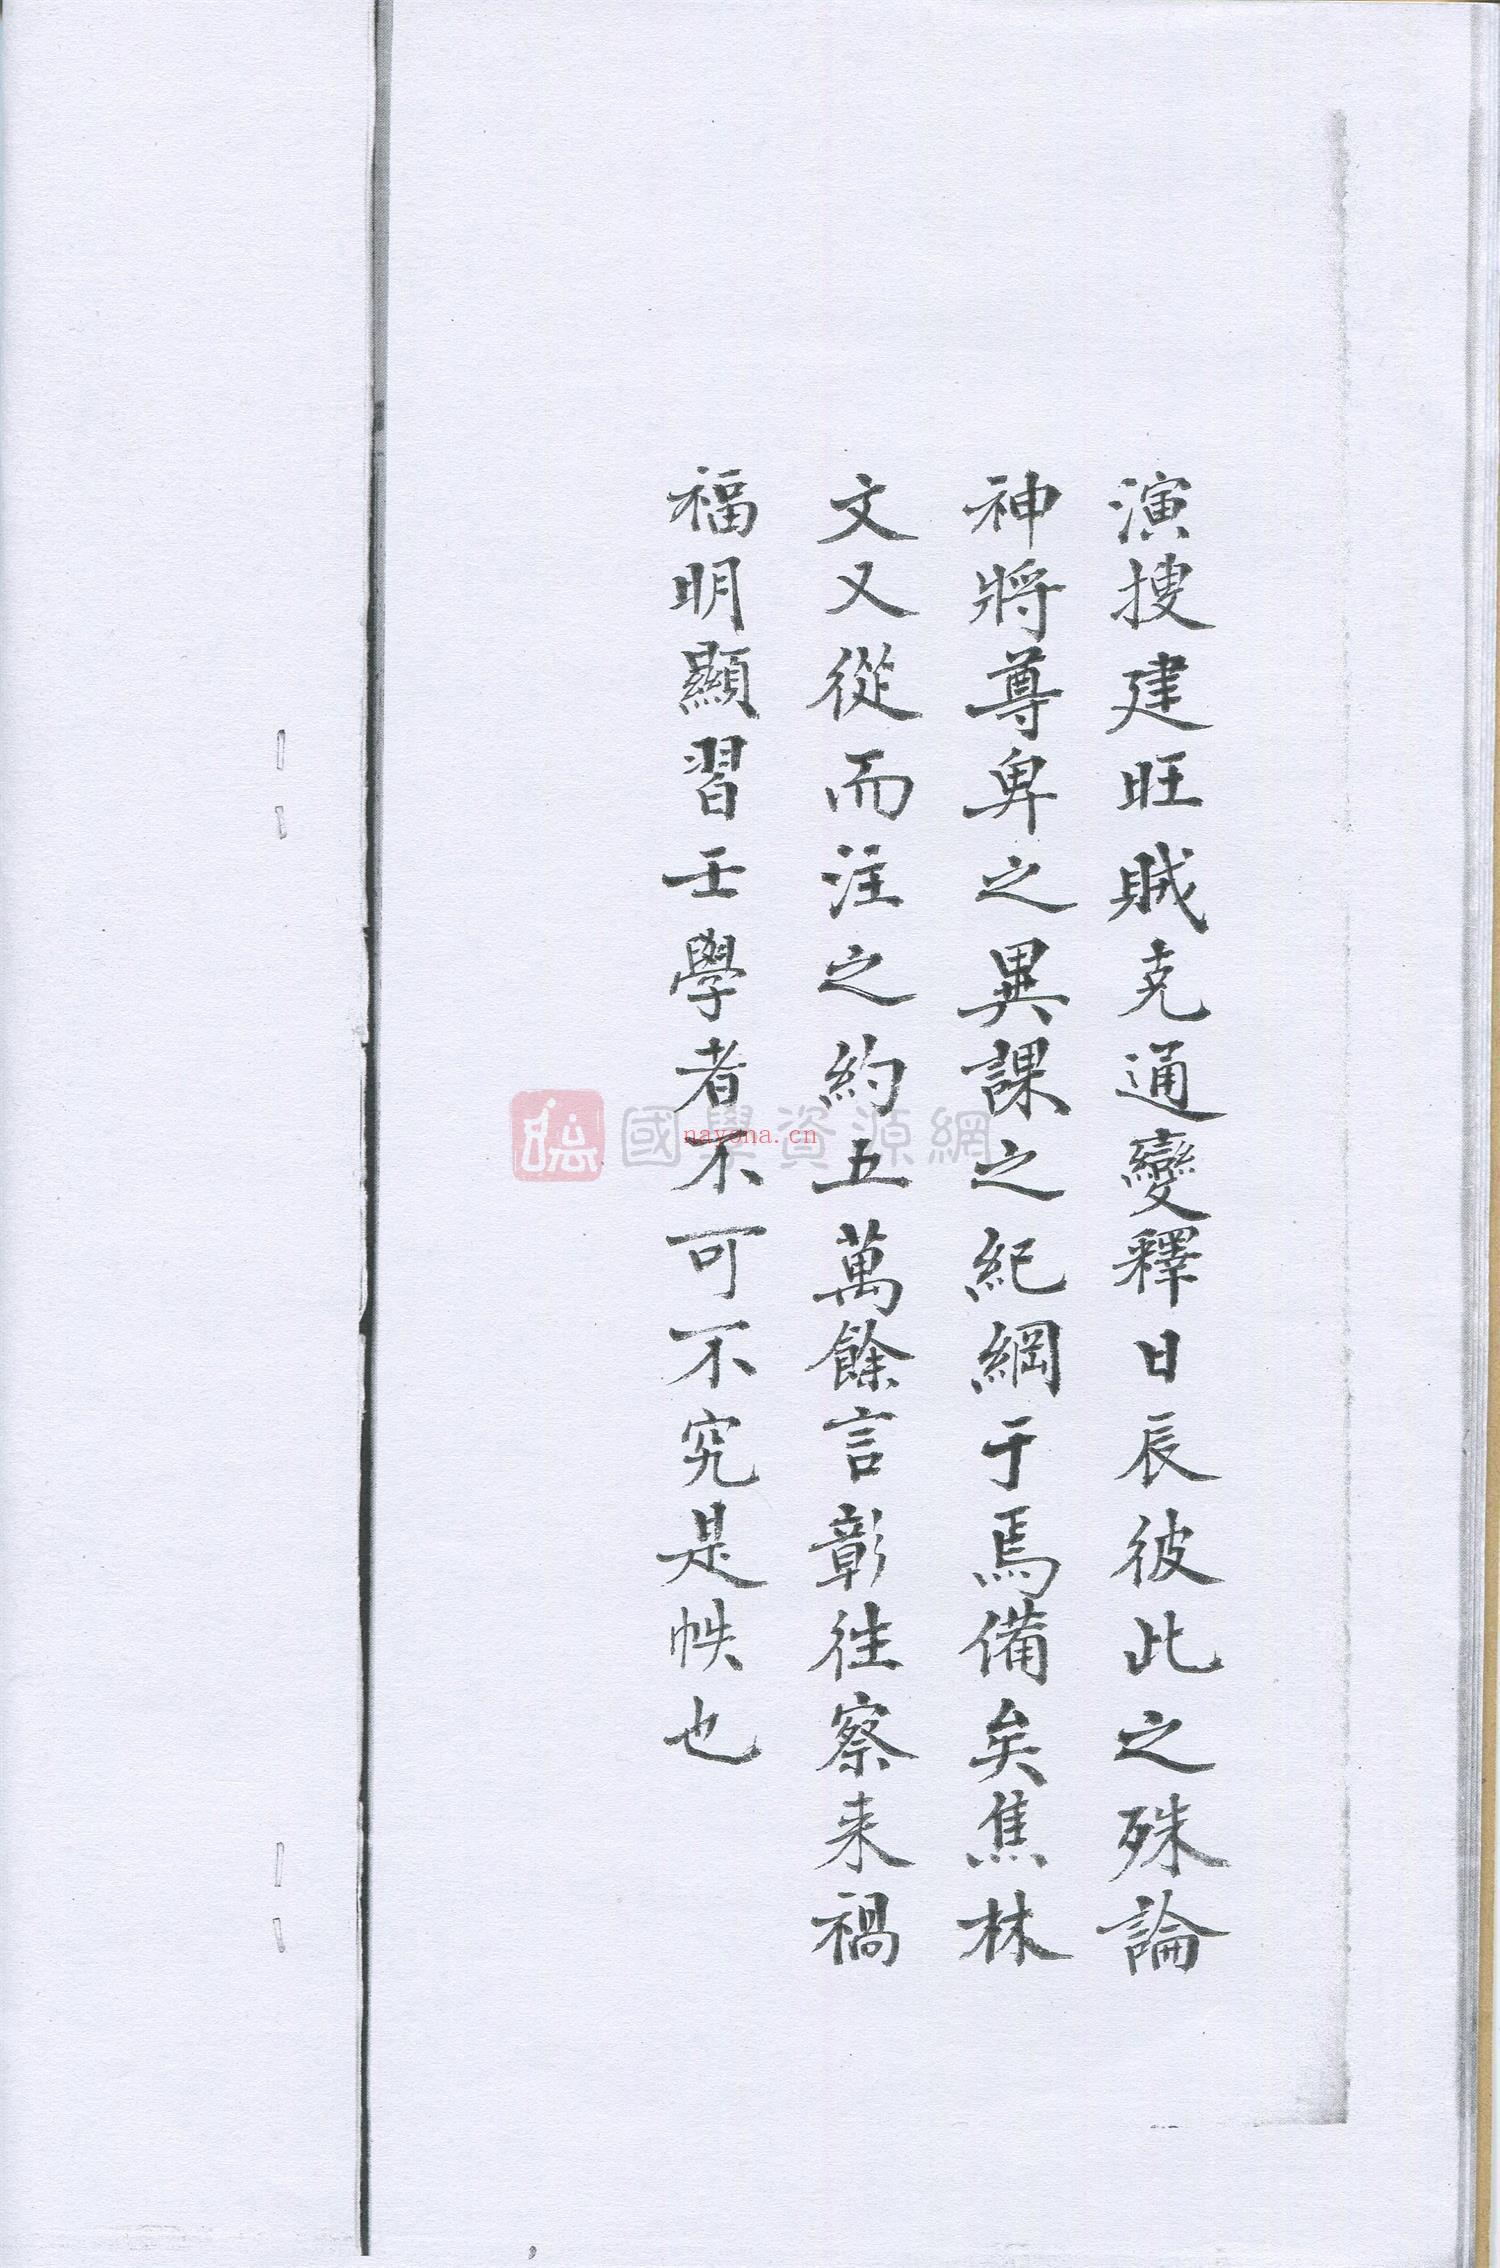 演搜建旺賊克通變釋日辰彼此之殊論
神將尊卑之異課之紀綱于焉備矣焦林
文又從而注之約五萬餘言彰往察来禍
福明顯習壬學者不可不究是帙也
國學資源網
nayona.cn